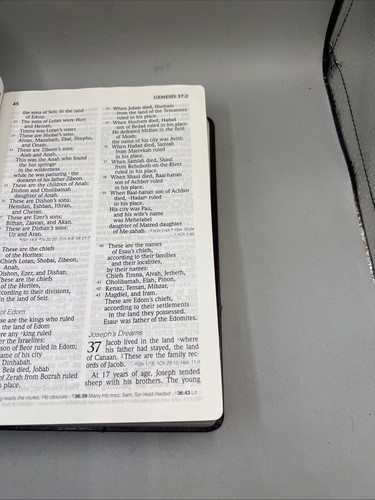 45
GENESIS 37:2
the sons of Seir, in the land
of Edom.
The sons of Lotan were Hori
and Heman.
Timna was Lotan's sister.
These are Shobal's sons:
Alvan, Manahath, Ebal, Shepho,
and Onam.
These are Zibeon's sons:
Aiah and Anah.
This was the Anah who found
the hot springs
in the wilderness
while he was pasturing the
donkeys of his father Zibeon.
These are the children of Anah:
Dishon and Oholibamah
daughter of Anah.
These are Dishon's sons:
Hemdan, Eshban, Ithran,
and Cheran.
These are Ezer's sons:
Bilhan, Zaavan, and Akan.
These are Dishan's sons:
Uz and Aran.
These are the chiefs
of the Horites:
Chiefs Lotan, Shobal, Zibeon,
Anah,
Dishon, Ezer, and Dishan.
These are the chiefs
of the Horites,
according to their divisions,
in the land of Seir.
of Edom
are the kings who ruled
the land of Edom
ere any king ruled
er the Israelites:
son of Beor ruled in Edom;
ame of his city
Dinhabah.
Bela died, Jobab
of Zerah from Bozrah ruled
s place.
When Jobab died, Husham
from the land of the Temanites
ruled in his place.
When Husham died, Hadad
son of Bedad ruled in his place.
He defeated Midian in the field
of Moab;
the name of his city was Avith.
When Hadad died, Samlah
from Masrekah ruled
in his place.
When Samlah died, Shaul
from Rehoboth-on-the-River
ruled in his place.
When Shaul died, Baal-hanan
son of Achbor ruled
in his place.
When Baal-hanan son of Achbor
died, Hadar ruled
in his place.
His city was Pau,
and his wife's name
was Mehetabel
daughter of Matred daughter
of Me-zahab.
40 These are the names
of Esau's chiefs,
according to their families
and their localities,
by their names:
Chiefs Timna, Alvah, Jetheth,
41 Oholibamah, Elah, Pinon,
42 Kenaz, Teman, Mibzar,
43 Magdiel, and Iram.
These are Edom's chiefs,
according to their settlements
in the land they possessed.
Esau was father of the Edomites.
Joseph's Dreams
37 Jacob lived in the land where
his father had stayed, the land
of Canaan. 2 These are the family rec-
ords of Jacob.
At 17 years of age, Joseph tended
sheep with his brothers. The young
36:39 Many Hb mss, Sam, Syr read Hadad 36:43 Lit